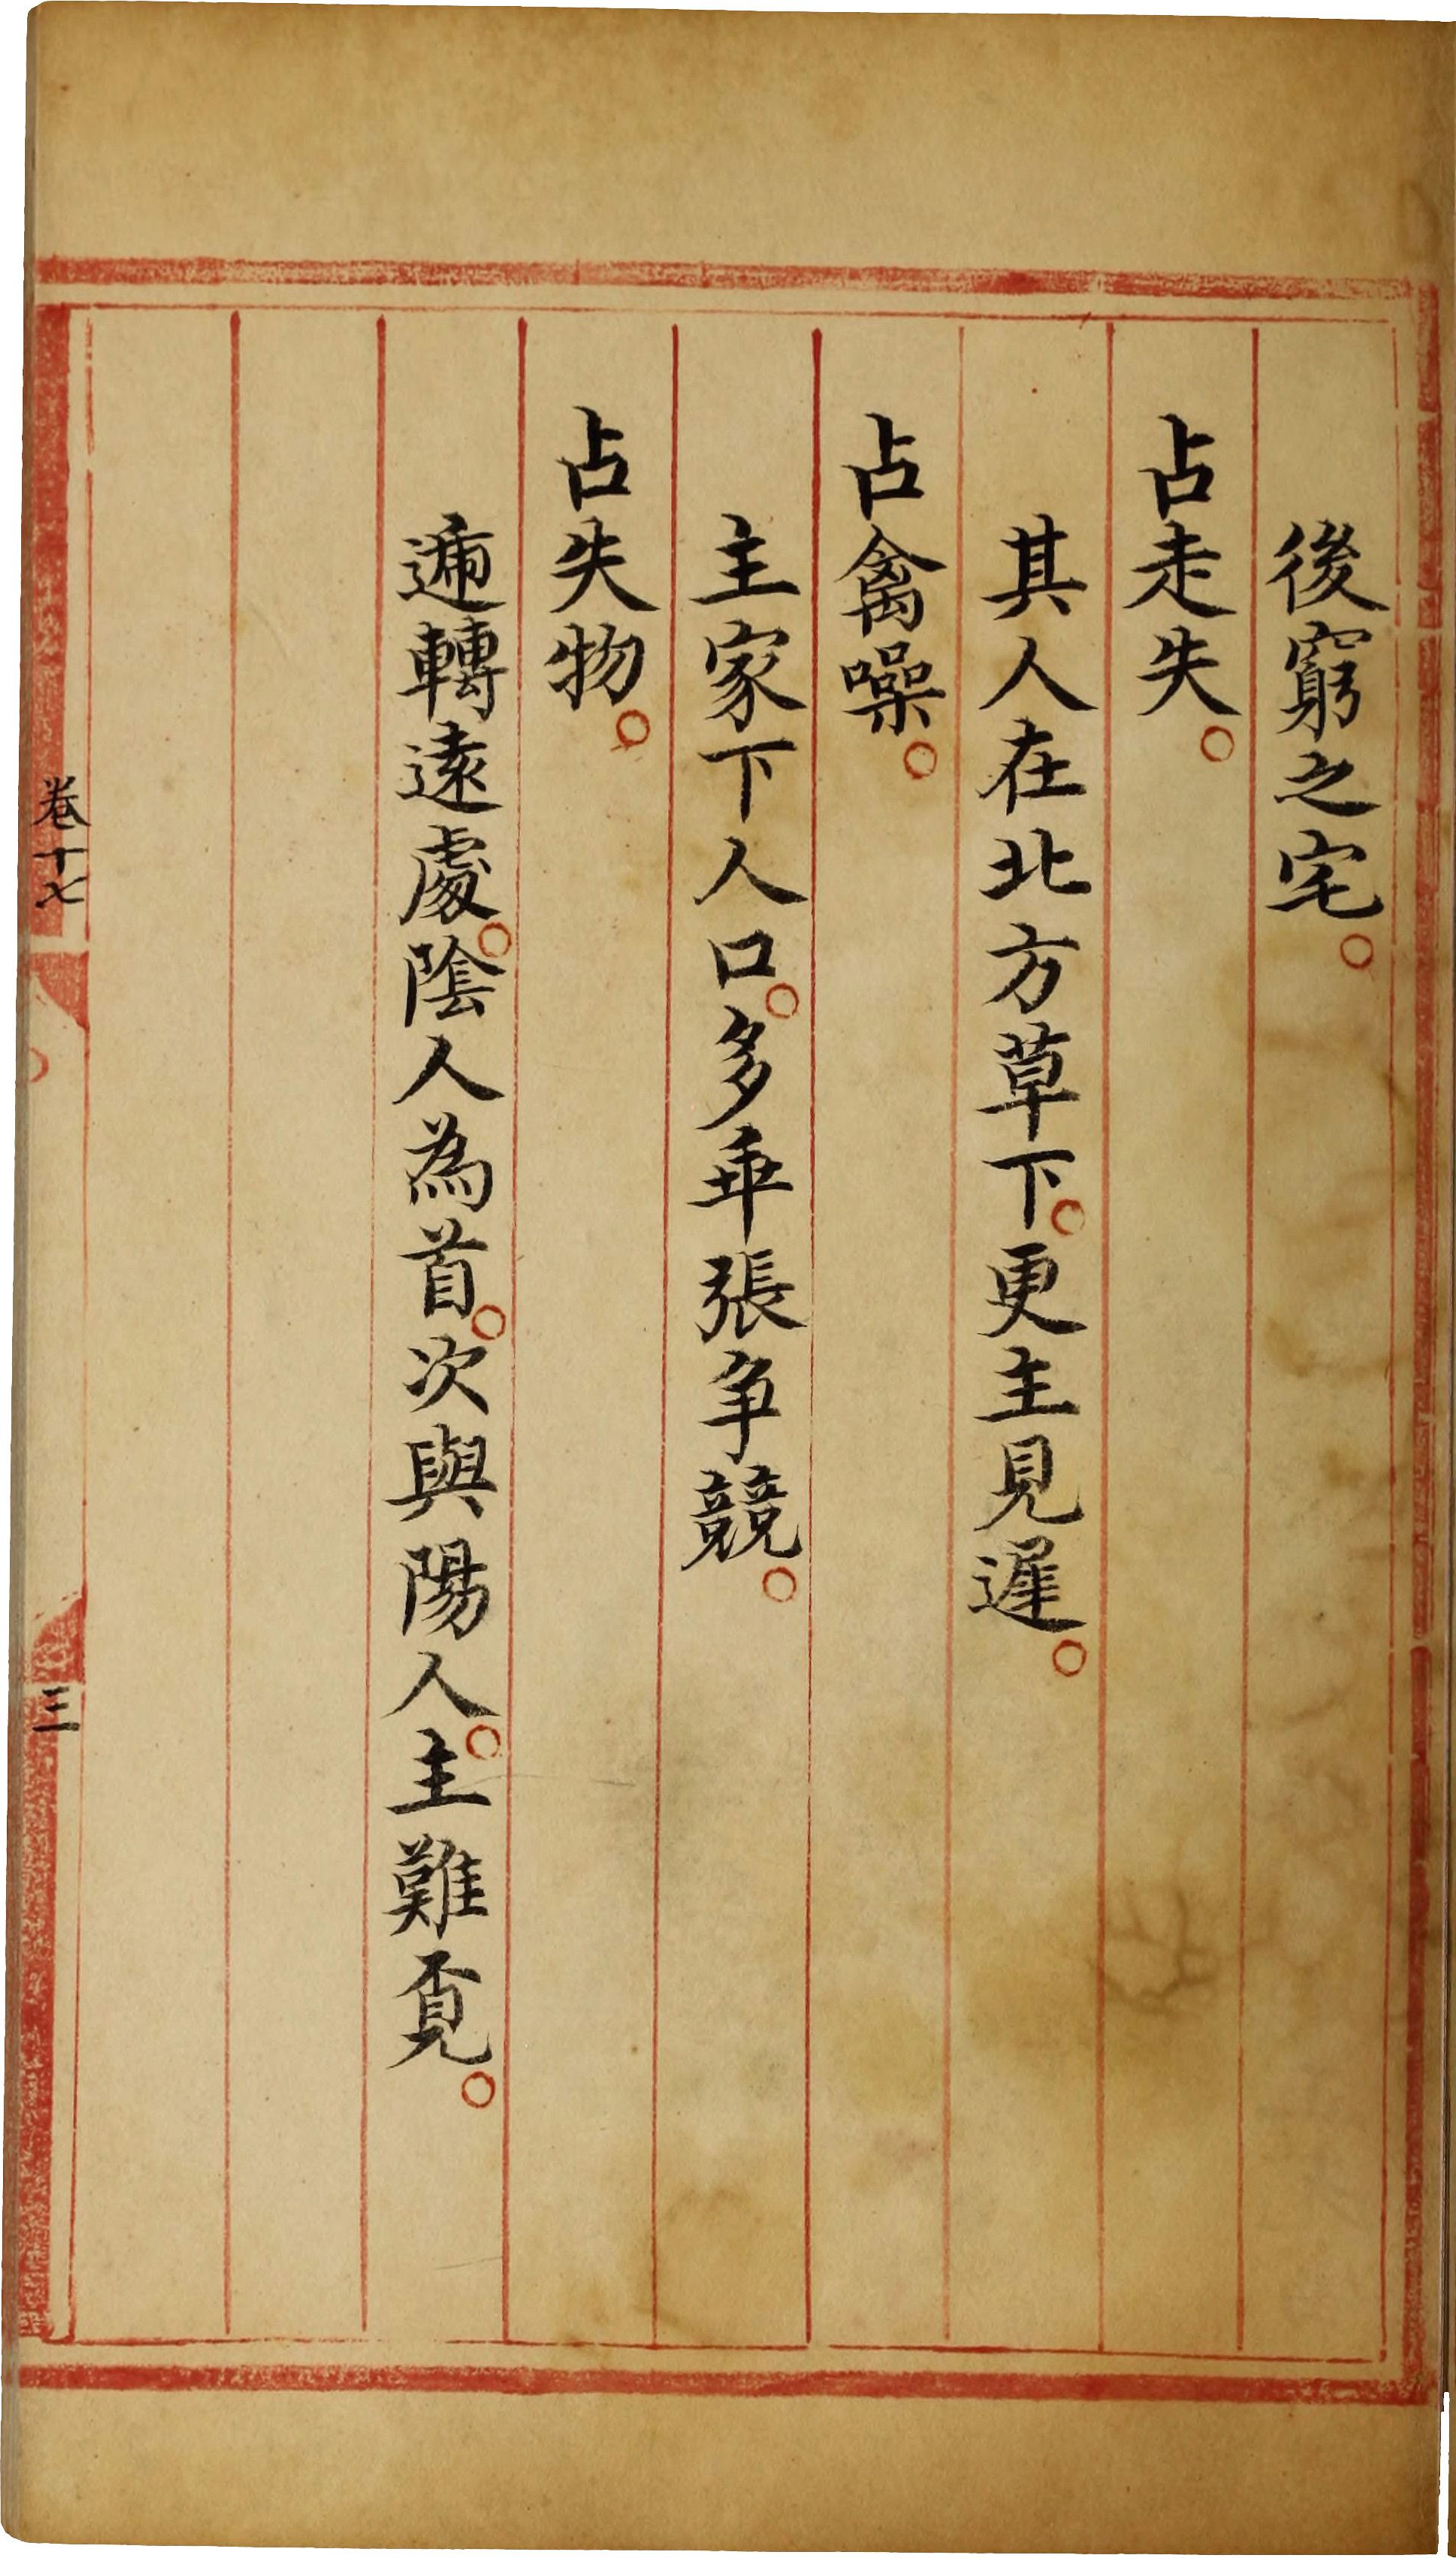 後窮之宅。
占走失。
其人在北方草下。更主見遲。
占禽噪。
主家下人口。多乖張爭競。
占失物。
遞轉遠處。陰人為首。次與陽人。主難覓。
卷十七
三